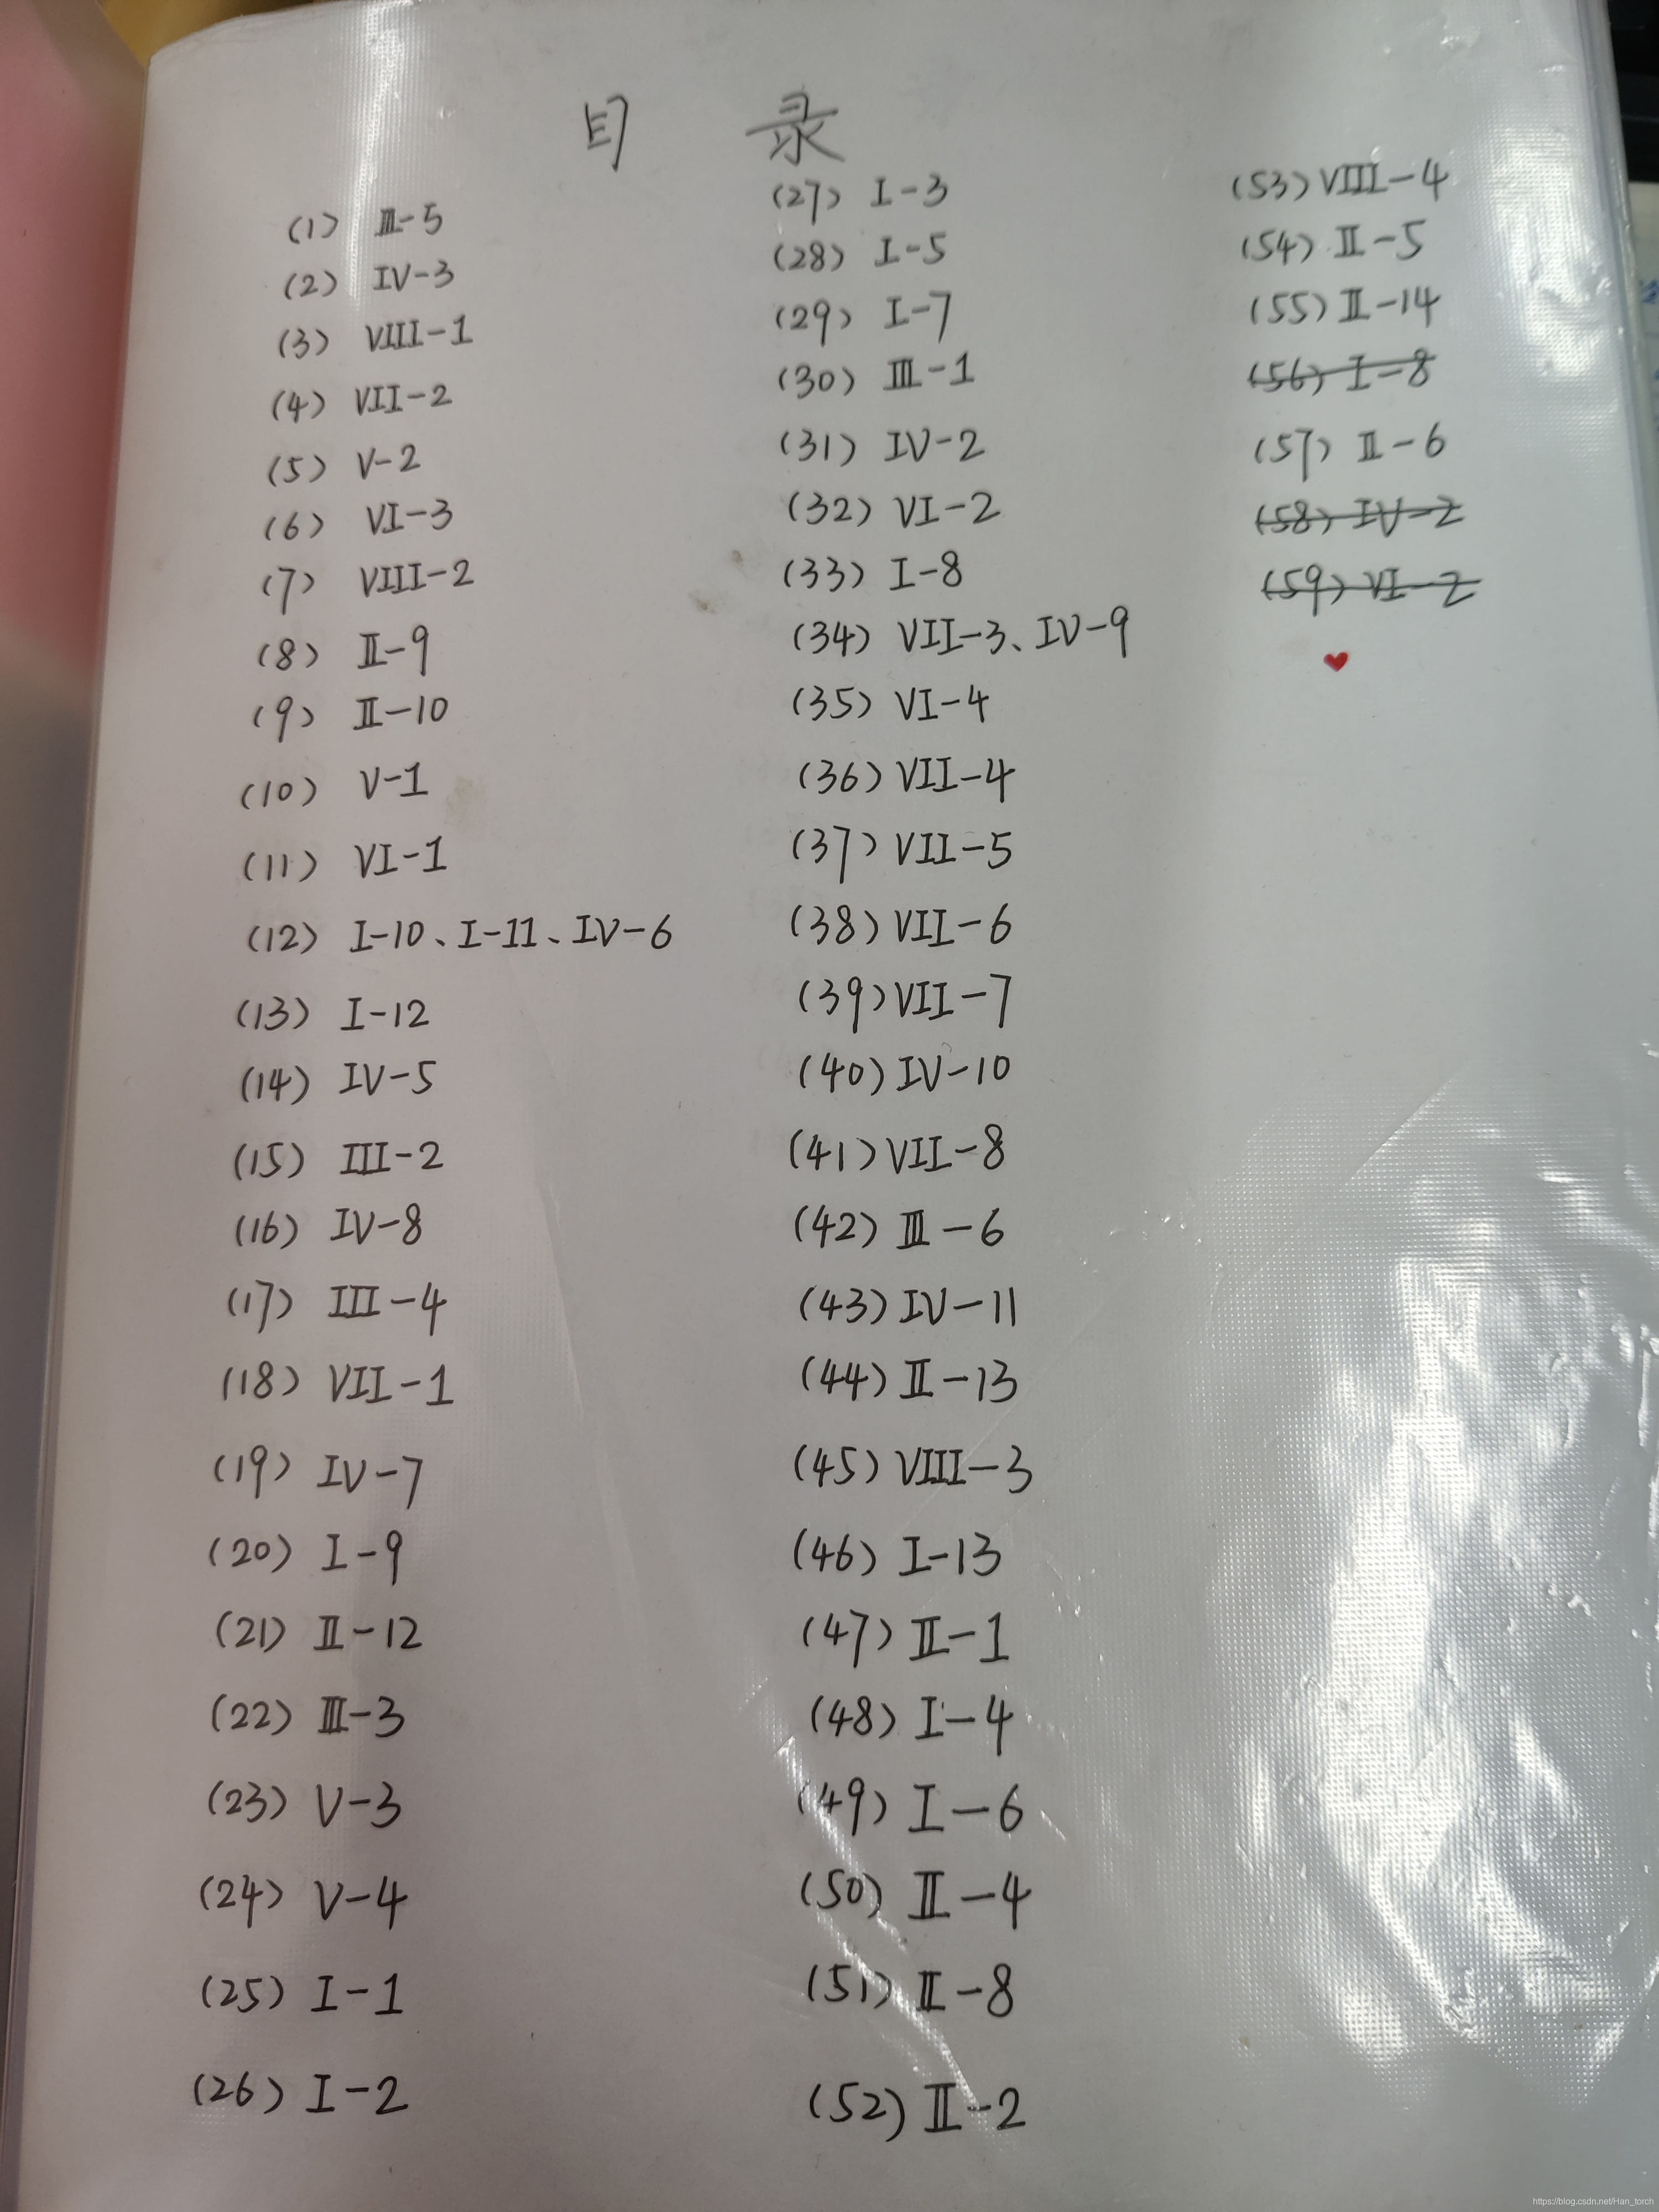 目 录
(1) III-5
(2) IV-3
(3) VIII-1
(4) VII-2
(5) V-2
(6) VI-3
(7) VIII-2
(8) II-9
(9) II-10
(10) V-1
(11) VI-1
(12) I-10、I-11、IV-6
(13) I-12
(14) IV-5
(15) III-2
(16) IV-8
(17) III-4
(18) VII-1
(19) IV-7
(20) I-9
(21) II-12
(22) III-3
(23) V-3
(24) V-4
(25) I-1
(26) I-2
(27) I-3
(28) I-5
(29) I-7
(30) III-1
(31) IV-2
(32) VI-2
(33) I-8
(34) VII-3、IV-9
(35) VI-4
(36) VII-4
(37) VII-5
(38) VII-6
(39) VII-7
(40) IV-10
(41) VII-8
(42) III-6
(43) IV-11
(44) II-13
(45) VIII-3
(46) I-13
(47) II-1
(48) I-4
(49) I-6
(50) II-4
(51) II-8
(52) II-2
(53) VIII-4
(54) II-5
(55) II-14
(56) I-8
(57) II-6
(58) IV-2
(59) VI-2
https://blog.csdn.net/Han_torch